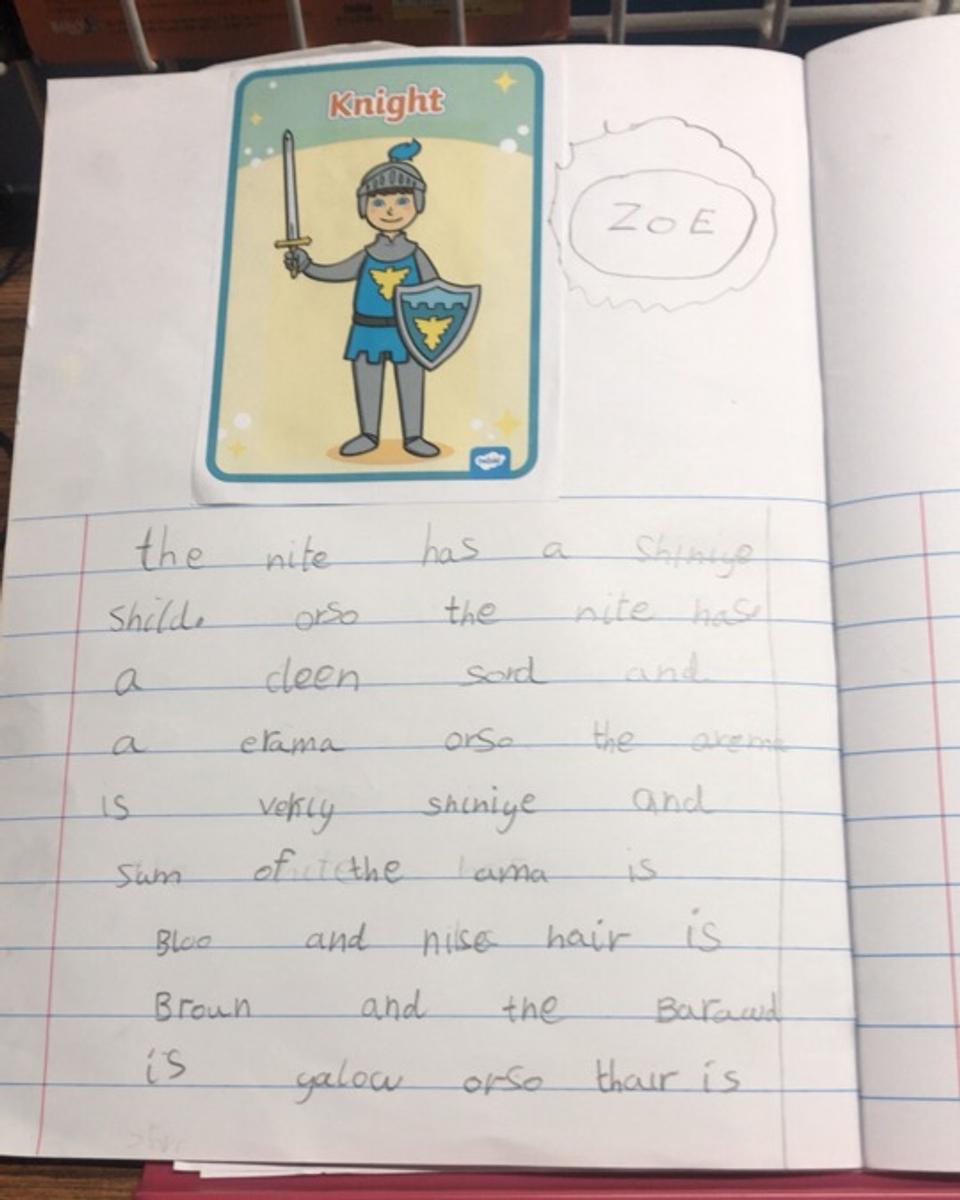 Knight
ZOE
twinkl
the nite has a shiniye
shild. orso the nite has
a cleen sord and
a erama orso the arema
is veriy shiniye and
sum of the ama is
Bloo and nise hair is
Broun and the Barawd
is yalow orso thair is